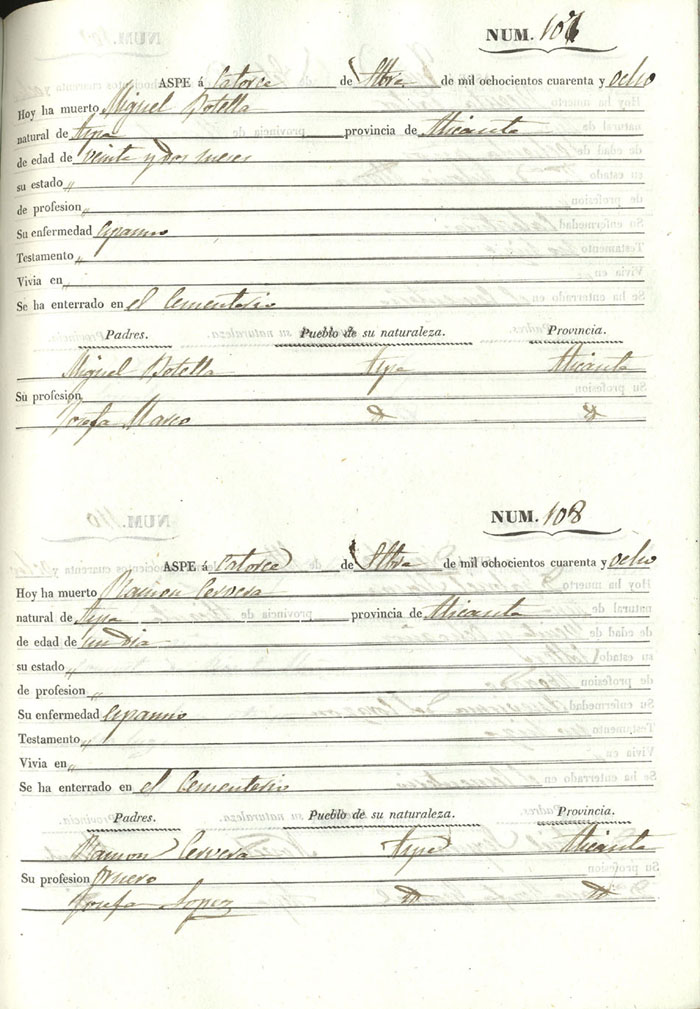 NUM. 107
ASPE á Catorce de Stbre de mil ochocientos cuarenta y ocho
Hoy ha muerto Miguel Botella
natural de Aspe provincia de Alicante
de edad de veinte y dos meses
su estado "
de profesion "
Su enfermedad Espasmo
Testamento "
Vivia en "
Se ha enterrado en el Cementerio
Padres. Pueblo de su naturaleza. Provincia.
Miguel Botella Aspe Alicante
Su profesion
Josefa Marco Id Id
NUM. 108
ASPE á Catorce de Stbre de mil ochocientos cuarenta y ocho
Hoy ha muerto Ramon Cervera
natural de Aspe provincia de Alicante
de edad de un dia
su estado "
de profesion "
Su enfermedad Espasmo
Testamento "
Vivia en "
Se ha enterrado en el Cementerio
Padres. Pueblo de su naturaleza. Provincia.
Ramon Cervera Aspe Alicante
Su profesion
Josefa Lopez Id Id